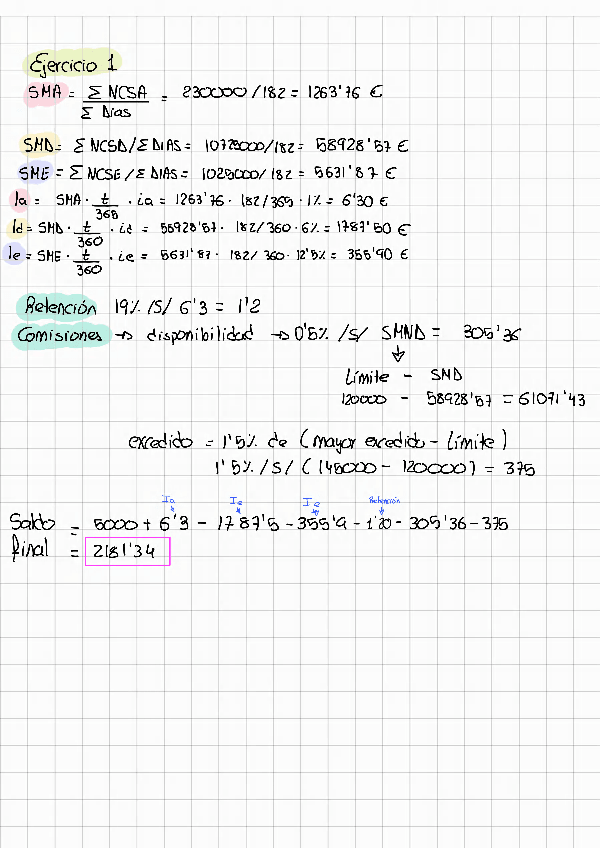 Ejercicio 1
SMA = Σ NCSA / Σ Dias = 230000/182 = 1263'76 €
SMD = Σ NCSD/Σ DIAS = 10725000/182 = 58928'57 €
SME = Σ NCSE/Σ DIAS = 1025000/182 = 5631'87 €
Ia = SMA · t/365 · ia = 1263'76 · 182/365 · 1% = 6'30 €
Id = SMD · t/360 · id = 58928'57 · 182/360 · 6% = 1787'50 €
Ie = SME · t/360 · ie = 5631'87 · 182/360 · 12'5% = 355'90 €
Retención 19% /S/ 6'3 = 1'2
Comisiones → disponibilidad → 0'5% /S/ SMND = 305'36
↓
Límite - SMD
120000 - 58928'57 = 61071'43
excedido = 1'5% de (mayor excedido - Límite)
1'5% /S/ (145000 - 120000) = 375
Ia Ie Ie Retención
Saldo = 5000 + 6'3 - 1787'5 - 355'9 - 1'20 - 305'36 - 375
final = 2181'34